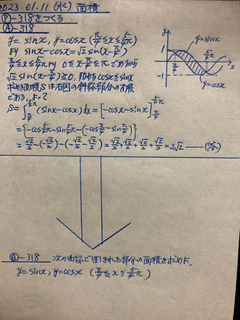 2023.01.11 (水) 面積
Ⓟ-318をつくる
Ⓐ-318
y = sinx, y=cosx (π/4≦x≦5/4π)
より sinx-cosx=√2 sin(x-π/4)
π/4≦x≦5/4πより 0≦x-π/4≦πであるから
√2 sin(x-π/4)≧0, すなわち cosx≦sinx
求める面積Sは右図の斜線部分の面積
である。よって
S=∫ (sinx-cosx)dx = [-cosx-sinx]
={-cos5/4π-sin5/4π-(-cosπ/4-sinπ/4)}
=√2/2-(-√2/2)-(-√2/2-√2/2)=√2/2+√2/2+√2/2+√2/2=2√2 —(答)
y
y=cosx
y=sinx
x
Ⓠ-318 次の曲線で囲まれた部分の面積を求めよ.
y=sinx, y=cosx (π/4≦x≦5/4π)